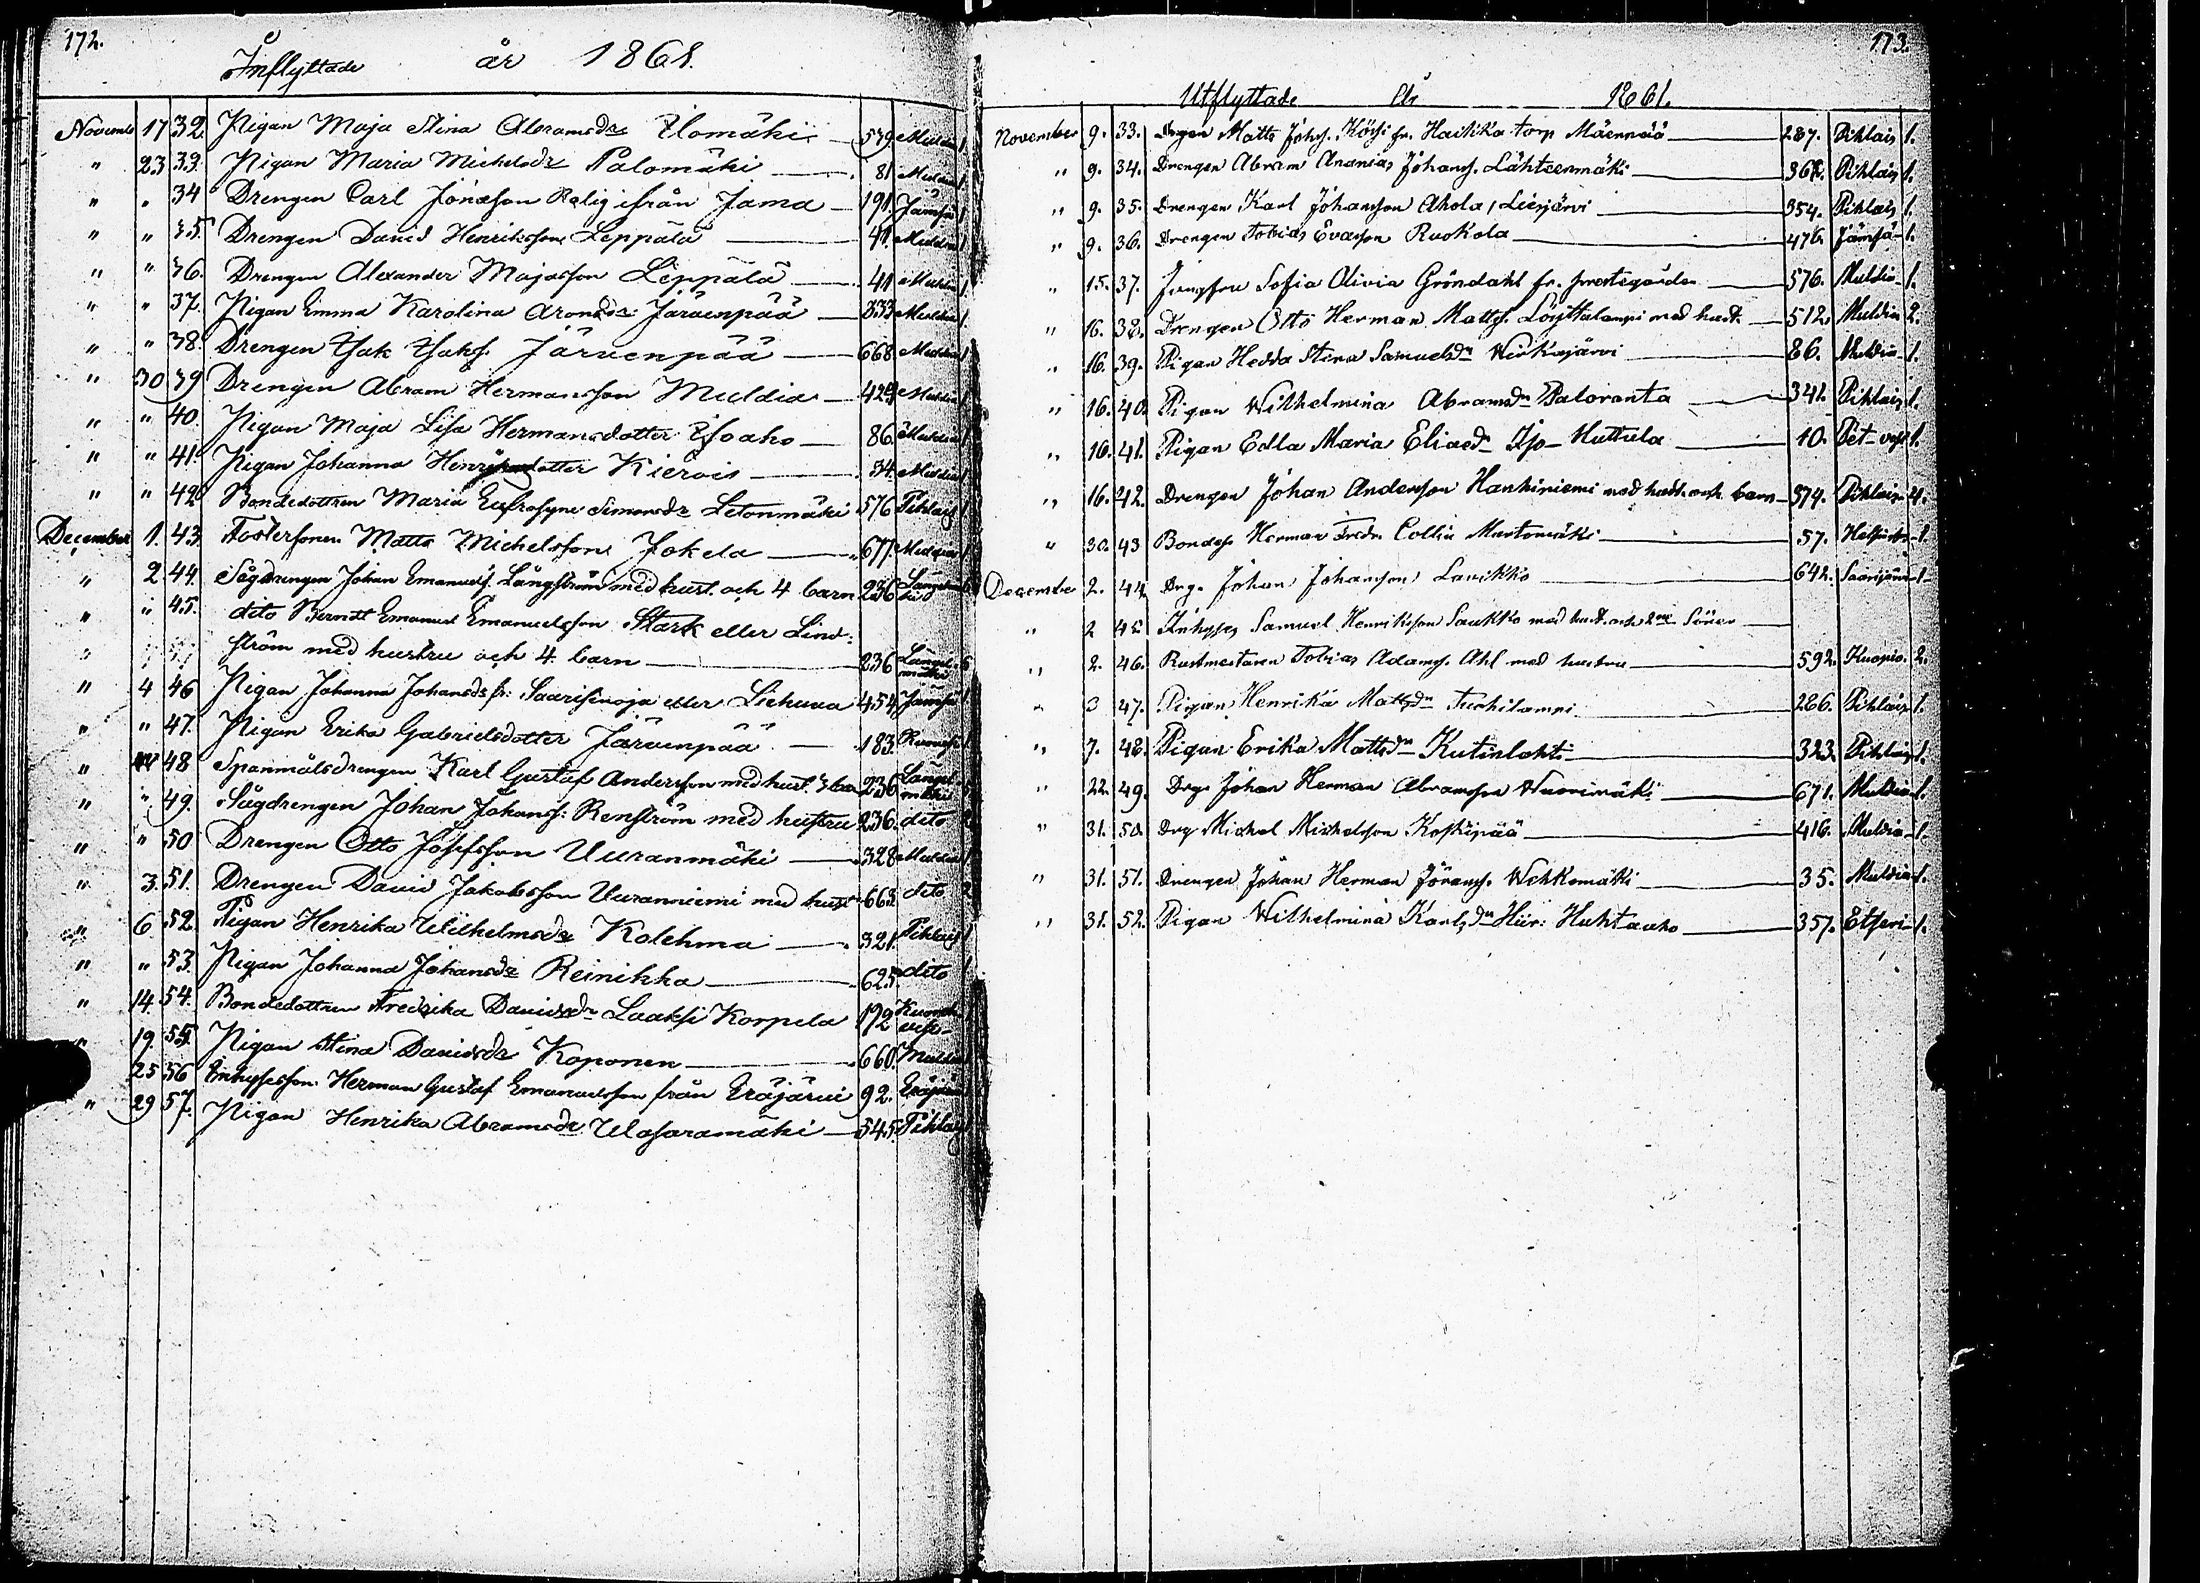 172.
Inflyttade år 1861.
Novemb 17 32. Pigan Maja Stina Abramsdr Ylomäki 579 Muldia 1
" 23 33. Pigan Maria Michelsdr Palomäki 81 Muldia 1
" " 34 Drengen Carl Jonasson Relig ifrån Jama 191. Jämsä 1
" " 35. Drengen David Henriksson Leppälä 41 Muldia 1
" " 36. Drengen Alexander Majasson Leppälä 41 Muldia 1
" " 37. Pigan Emma Karolina Aronsdr Järvenpää 333 Muldia 1
" " 38. Drengen Isak Isaks. Järvenpää 668 Muldia 1
" 30 39 Drengen Abram Hermansson Muldia 429 Muldia 1
" " 40. Pigan Maja Lisa Hermansdotter Isoaho 86 Muldia 1
" " 41. Pigan Johanna Henriksdotter Kierois 34. Muldia 1
" " 42 Bondedottren Maria Eufrosyne Simonsdr Letonmäki 576 Pihlais 1
December 1. 43 Fostersonen Matts Michelsson Jokela 677 Muldia 1
" 2. 44. Sågdrengen Johan Emanuels. Långström med hust. och 4 barn 236 Längelmäki 6
" " 45. dito Berndt Emanuel Emanuelsson Stark eller Lind-
ström med hustru och 4 barn 236 Längelmäki 6
" 4 46 Pigan Johanna Johansdr fr. Saarisenoja eller Liehuva 454 Jämsä 1
" " 47. Pigan Erika Gabrielsdotter Järvenpää 183. 1
" 48 Spanmålsdrengen Karl Gustaf Andersson med hust. 3 barn 236 Längelmäki 5
" " 49. Sågdrengen Johan Johans. Renström med hustru 236. dito 2
" " 50 Drengen Otto Josefsson Uuranmäki 328 Muldia 1
" 3. 51. Drengen David Jakobsson Uuranniemi med hust 662 dito 2
" 6 52. Pigan Henrika Wilhelmsdr Kolehma 321. Pihlais 1
" " 53. Pigan Johanna Johansdr Reinikka 625. dito 1
" 14. 54. Bondedottren Fredrika Davidsdr Laaksi Korpela 192 Kuorevesi
" 19. 55. Pigan Stina Davidsdr Koponen 660. Muldia 1
25 56 Inhysesson Herman Gustaf Emanuelsson från Eräjärvi 92. Eräjärvi
" 29 57. Pigan Henrika Abramsdr Wasaramäki 545. Pihlais
173.
Utflyttade År 1861.
November 9. 33. Drgen Matts Johs. Köösi fr. Haitika torp Mäenpää 287. Pihlais 1.
" 9. 34. Drengen Abram Ananias Johans. Lähteenmäki 367. Pihlais 1.
" 9. 35. Drengen Karl Johansson Ahola, Liesjärvi 354. Pihlais 1.
" 9. 36. Drengen Tobias Evasson Ruokola 476. Jämsä 1.
" 15. 37. Jungfru Sofia Olivia Gröndahl fr. prestegården 576. Muldia 1.
" 16. 38. Drengen Otto Herman Matts. Löyttälampi med hust. 512. Muldia 2.
" 16. 39. Pigan Hedda Stina Samuelsdr Wirkajärvi 86. Muldia 1.
" 16. 40. Pigan Wilhelmina Abramsdr Paloranta 341. Pihlais 1.
" 16. 41. Pigan Edla Maria Eliaedr Iso-Huttula 10. Pet-vesi 1.
" 16. 42. Drengen Johan Andersson Hankiniemi med hust. och barn 574. Pihlais 4.
" 30. 43 Bondes. Herman Fredr. Collin Murtomäki 57. Helsinfrs 1.
December 2. 44 Drg. Johan Johansson Lavikko 642. Saarijärvi 1.
" 2 45 Inhyses Samuel Henriksson Saukko med hust. och 2ne Söner
" 2. 46. Rustmestaren Tobias Adams. Ahl med hustru 592. Kuopio. 2.
" 3 47. Pigan Henrika Mattsdr Turkilampi 286. Pihlais 1.
" 7. 48. Pigan Erika Mattsdr Kutinlahti 323. Pihlais 1.
" 22. 49. Drg. Johan Herman Abramsson Wuorimäki 671. Muldia 1.
" 31. 50. Drg Michel Michelsson Koskipää 416. Muldia 1.
" 31. 51. Drengen Johan Herman Jörans. Wehkomäki 35. Muldia 1.
" 31. 52. Pigan Wilhelmina Karlsdr Hiir: Huhtaaho 357. Etseri 1.